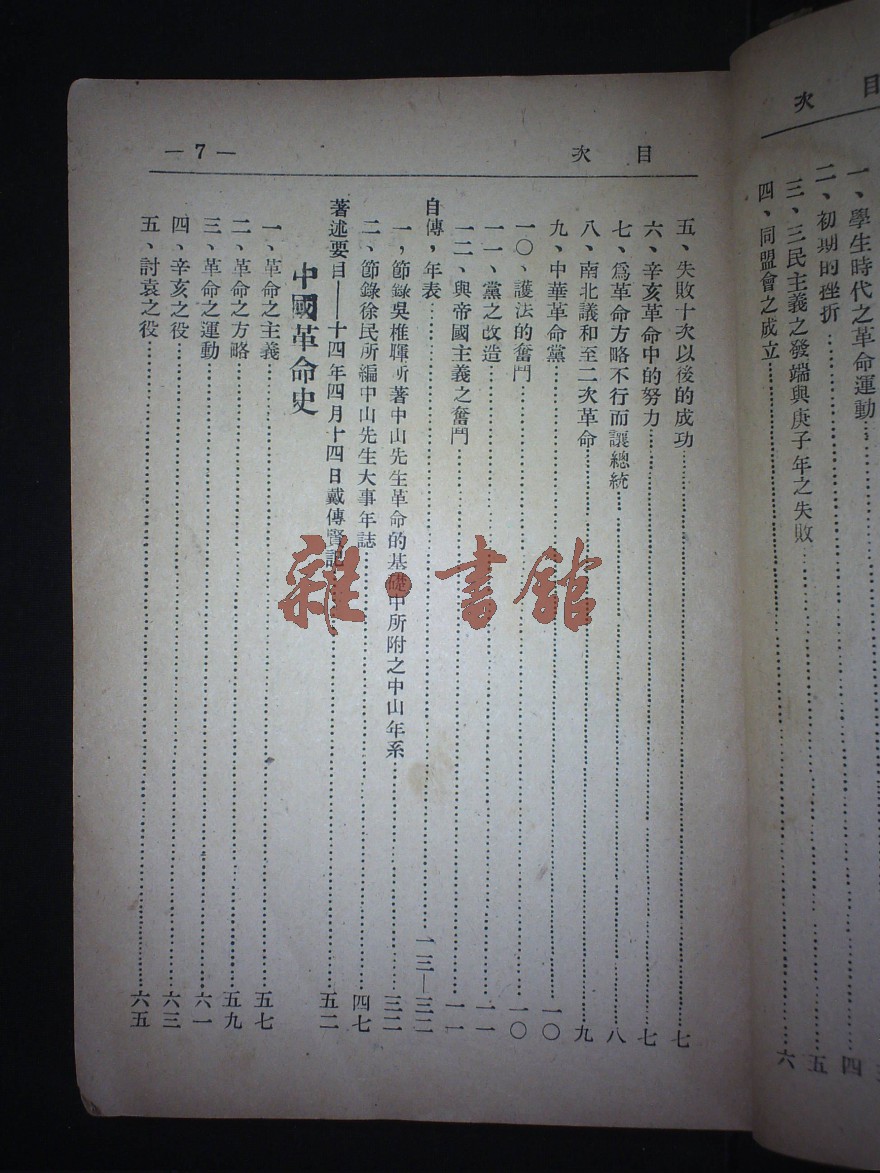 次 目
一、學生時代之革命運動……四
二、初期的挫折……五
三、三民主義之發端與庚子年之失敗
四、同盟會之成立……六
次 目
— 7 —
五、失敗十次以後的成功……七
六、辛亥革命中的努力……七
七、爲革命方略不行而讓總統……八
八、南北議和至二次革命……九
九、中華革命黨……一〇
一〇、護法的奮鬥……一〇
一一、黨之改造……一一
一二、與帝國主義之奮鬥……一一
自傳，年表……一三—三二
一，節錄吳稚暉所著中山先生革命的基礎中所附之中山年系……三二
二、節錄徐民所編中山先生大事年誌……四七
著述要目——十四年四月十四日戴傳賢記……五二
中國革命史
一、革命之主義……五七
二、革命之方略……五九
三、革命之運動……六一
四、辛亥之役……六三
五、討袁之役……六五
雜·書舘